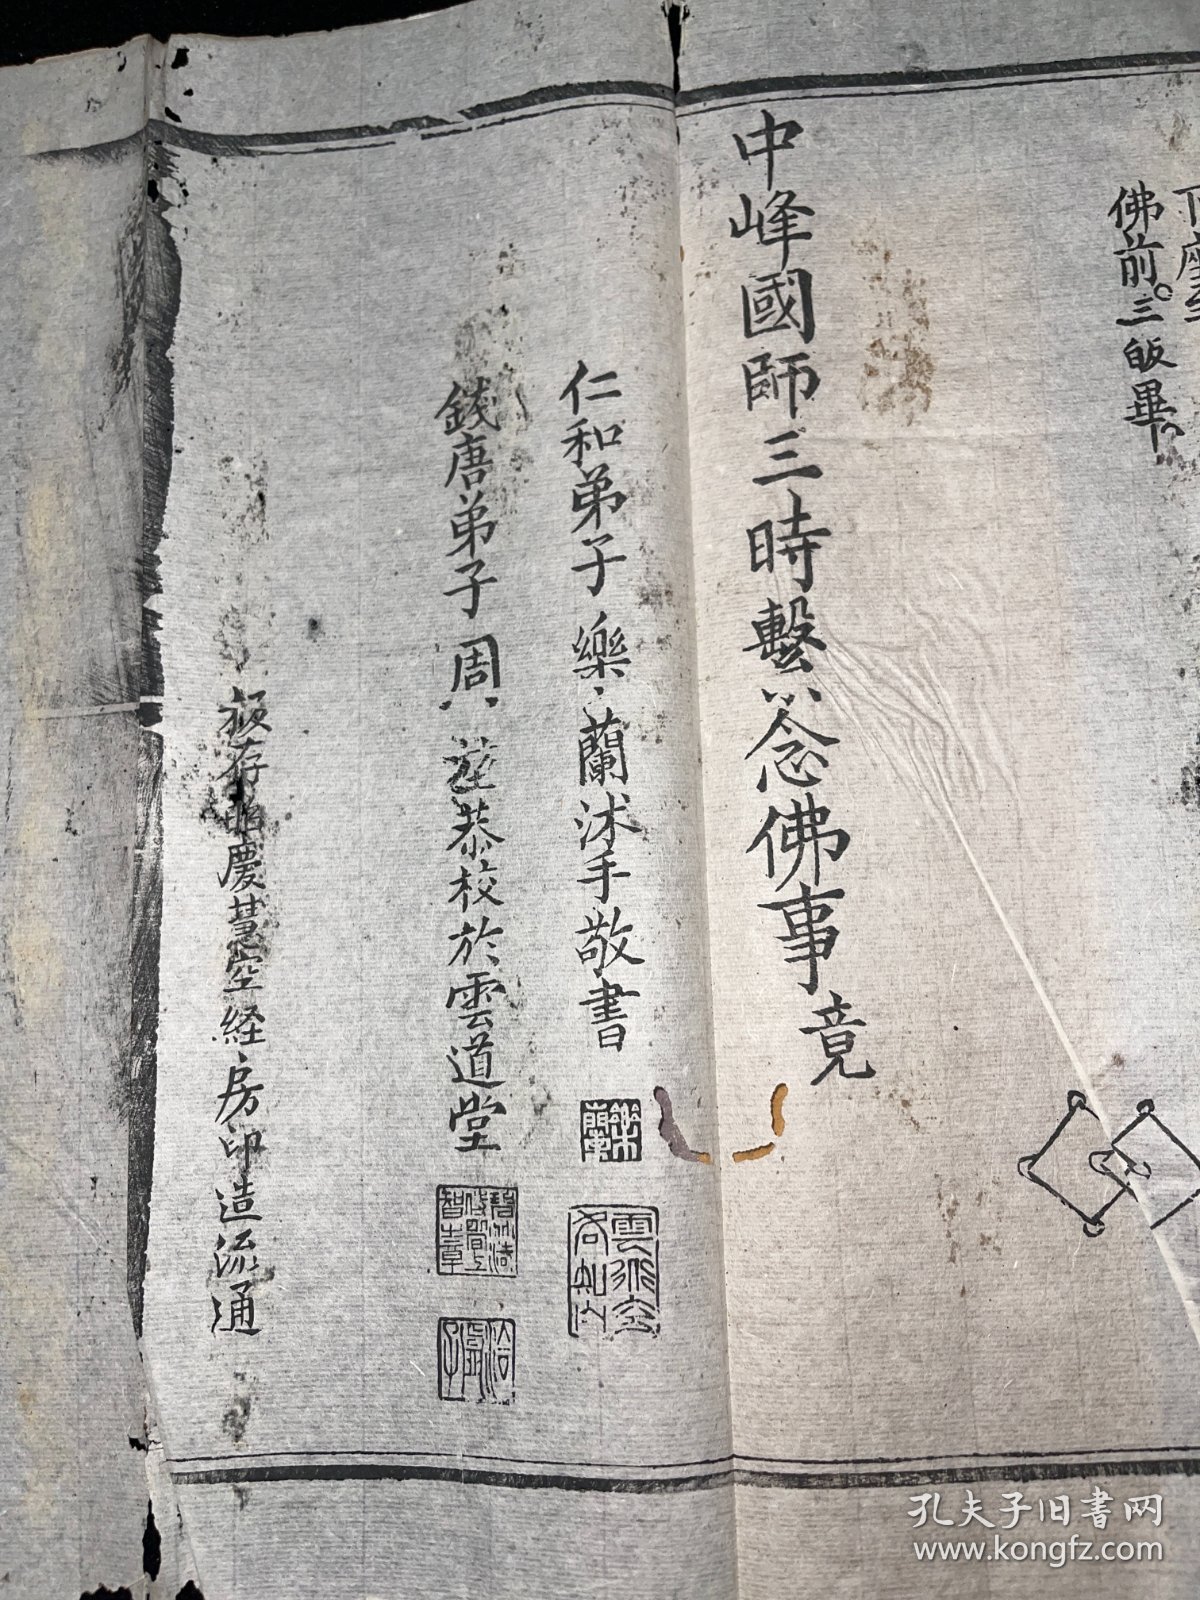 下座至
佛前三皈畢
中峰國師三時繫念佛事竟
仁和弟子樂蘭沭手敬書
錢唐弟子周 恭校於雲道堂
板存昭慶慧空経房印造流通
樂蘭
孔夫子旧书网
www.kongfz.com